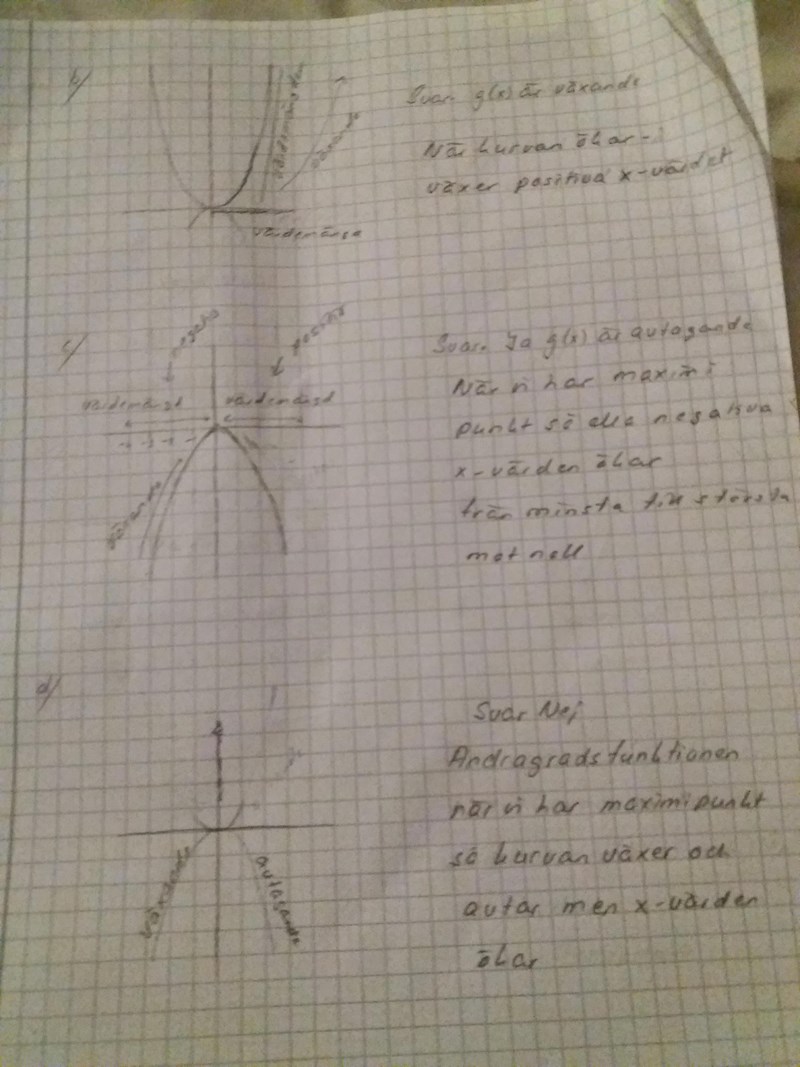 b)
Svar. g(x) är växande
När kurvan ökar -
växer positiva x-värdet
värdemängd
växande
värdemängd
c)
negativ
positiv
värdemängd värdemängd
Svar. Ja g(x) är avtagande
När vi har maximi
punkt så alla negativa
x-värden ökar
från minsta till största
mot noll
växande
d)
Svar Nej
Andragradsfunktionen
när vi har maximipunkt
så kurvan växer och
avtar men x-värden
ökar
växande
avtagande